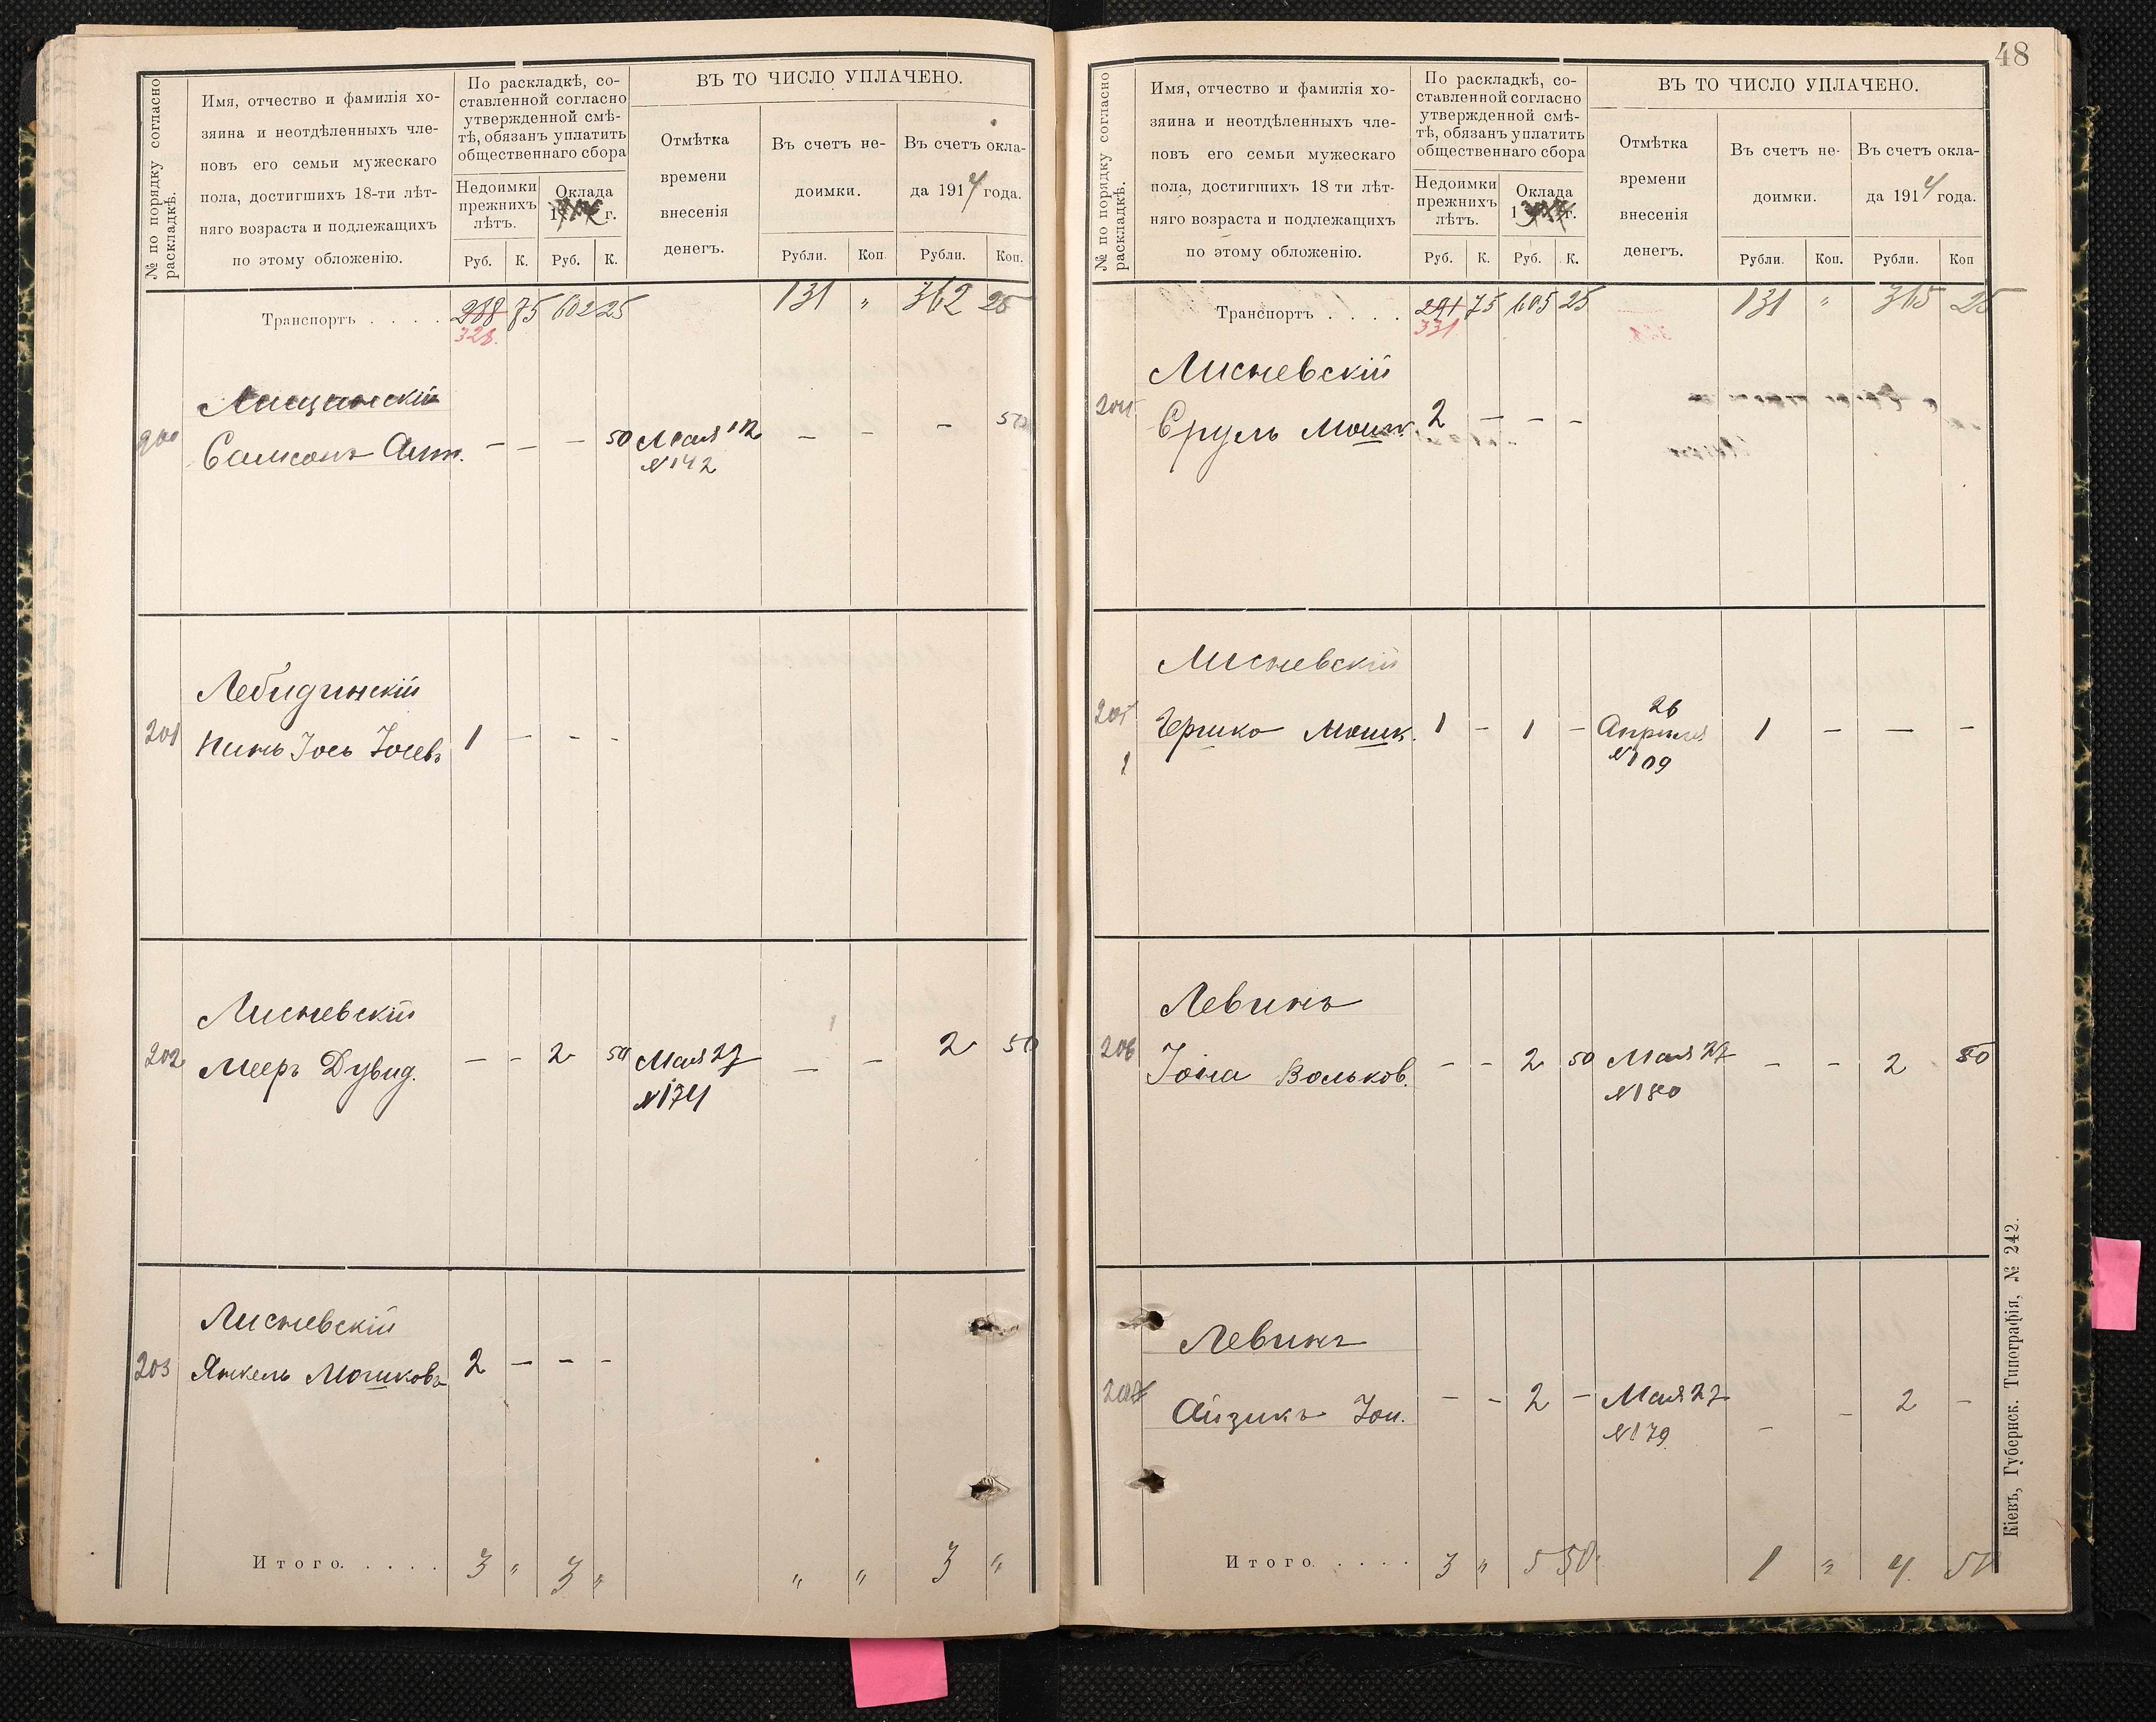 № по порядку согласно
раскладкѣ.
Имя, отчество и фамилія хо-
зяина и неотдѣленныхъ чле-
новъ его семьи мужескаго
пола, достигшихъ 18-ти лѣт-
няго возраста и подлежащихъ
по этому обложенію.
По раскладкѣ, со-
ставленной согласно
утвержденной смѣ-
тѣ, обязанъ уплатить
общественнаго сбора
Недоимки
прежнихъ
лѣтъ.
Оклада
г.
Руб. К. Руб. К.
ВЪ ТО ЧИСЛО УПЛАЧЕНО.
Отмѣтка
времени
внесенія
денегъ.
Въ счетъ не-
доимки.
Въ счетъ окла-
да 1914 года.
Рубли. Коп. Рубли. Коп.
Транспортъ . . . . 288 75 602 25 131 „ 362 25
328.
Самсонъ
200 — — — 50 Мая 12 — — — 50
№ 142
Лебидинскій
201 Пинь Іось Іосев. 1 — — —
Лисневскій
202 Мееръ Дувид. — — 2 50 Мая 27 — — 2 50
№ 174
Лисневскій
203 Янкель Мошковъ 2 — — —
Итого. . . . . 3 „ 3 „ „ „ 3 „
48
№ по порядку согласно
раскладкѣ.
Имя, отчество и фамилія хо-
зяина и неотдѣленныхъ чле-
новъ его семьи мужескаго
пола, достигшихъ 18 ти лѣт-
няго возраста и подлежащихъ
по этому обложенію.
По раскладкѣ, со-
ставленной согласно
утвержденной смѣ-
тѣ, обязанъ уплатить
общественнаго сбора
Недоимки
прежнихъ
лѣтъ.
Оклада
1 г.
Руб. К. Руб. К.
ВЪ ТО ЧИСЛО УПЛАЧЕНО.
Отмѣтка
времени
внесенія
денегъ.
Въ счетъ не-
доимки.
Въ счетъ окла-
да 1914 года.
Рубли. Коп. Рубли. Коп
Транспортъ . . . . 291 75 605 25 131 „ 365 25
331
Лисневскій
204 Сруль Мошк. 2 — — —
Лисневскій
205 Ершко Мошк. 1 — 1 — 26 Апрѣля 1 — — —
№ 109
Левинъ
206 Іойна Вольков. — — 2 50 Мая 27 — — 2 50
№ 180
Левинъ
207 Айзикъ Іон. — — 2 — Мая 27 — — 2 —
№ 179
Итого. . . . . 3 „ 5 50 1 „ 4 50
Кіевъ, Губернск. Типографія, № 242.